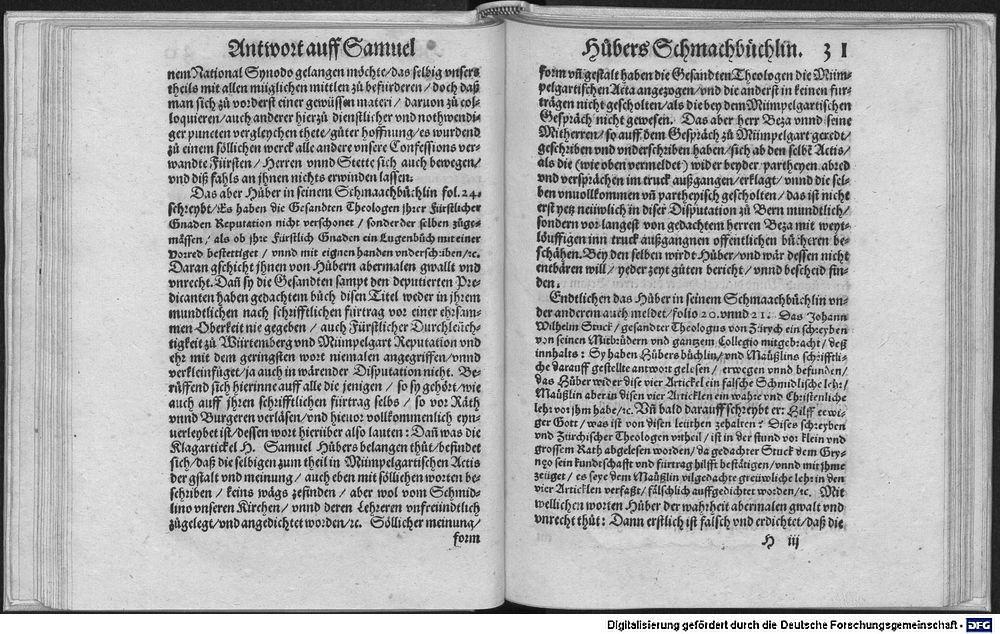 Antwort auff Samuel
nem National Synodo gelangen möchte/das selbig vnsers
theils mit allen müglichen mittlen zů befürderen/doch daß
man sich zů vorderst einer gewüssen materi/ daruon zů col-
loquieren/auch anderer hierzů dienstlicher vnd nothwendi-
ger puncten vergleychen thete/gůter hoffnung/es wurdend
zů einem söllichen werck alle andere vnsere Confessions ver-
wandte Fürsten/ Herren vnnd Stette sich auch bewegen/
vnd diß fahls an jhnen nichts erwinden lassen.
Das aber Hůber in seinem Schmaachbüchlin fol. 24.
schreybt/Es haben die Gesandten Theologen jhrer Fürstlicher
Gnaden Reputation nicht verschonet / sonder der selben zůge-
mässen/ als ob jhre Fürstlich Gnaden ein Lugenbůch mit einer
vorred bestettiget / vnnd mit eignen handen vnderschriben/ꝛc.
Daran gschicht jhnen von Hůbern abermalen gwallt vnd
vnrecht. Dañ sy die Gesandten sampt den deputierten Pre-
dicanten haben gedachtem bůch disen Titel weder in jhrem
mundtlichen nach schrifftlichen fürtrag vor einer ehrsam-
men Oberkeit nie gegeben / auch Fürstlicher Durchleüch-
tigkeit zů Würtemberg vnd Mümpelgart Reputation vnd
ehr mit dem geringsten wort niemalen angegriffen/vnnd
verkleinfüget/ja auch in wärender Disputation nicht. Be-
rüffend sich hierinne auff alle die jenigen / so sy gehört/wie
auch auff jhren schrifftlichen fürtrag selbs / so vor Räth
vnnd Burgeren verläsen/vnd hieuor vollkommenlich eyn-
uerleybet ist/dessen wort hierüber also lauten: Dañ was die
Klagartickel H. Samuel Hůbers belangen thůt/befindet
sich/daß die selbigen zum theil in Mümpelgartischen Actis
der gstalt vnd meinung / auch eben mit söllichen worten be-
schriben / keins wägs zefinden / aber wol vom Schmid-
lino vnseren Kirchen/ vnnd deren Lehreren vnfreündtlich
zůgelegt/vnd angedichtet worden/ꝛc. Söllicher meinung/
form
Hůbers Schmachbüchlin. 31
form vñ gestalt haben die Gesandten Theologen die Müm-
pelgartischen Acta angezogen/vnd die anderst in keinen fur-
trägen nicht gescholten/als die bey dem Mümpelgartischen
Gespräch nicht gewesen. Das aber herr Beza vnnd seine
Mitherren/ so auff dem Gespräch zů Mümpelgart geredt/
geschriben vnd vnderschriben haben/sich ab den selbẽ Actis/
als die (wie oben vermeldet) wider beyder partheyen abred
vnd versprächen im truck außgangen/erklagt/ vnnd die sel-
ben vnuollkommen vñ partheyisch gescholten/das ist nicht
erst yetz neüwlich in diser Disputation zů Bern mundtlich/
sonder vor langest von gedachtem herren Beza mit weyt-
löuffigen inn truck außgangnen offentlichen bücheren be-
schähen. Bey den selben wirdt Hůber/vnd wär dessen nicht
entbären will/ yeder zeyt gůten bericht/ vnnd bescheid fin-
den.
Endtlichen das Hůber in seinem Schmaachbüchlin vn-
der anderem auch meldet/folio 20. vnnd 21. Das Johann
Wilhelm Stuck/ gesandter Theologus von Zürych ein schreyben
von seinen Mitbrüdern vnd gantzem Collegio mitgebracht/ deß
innhalts: Sy haben Hůbers büchlin/vnd Mäußlins schrifftli-
che darauff gestellte antwort gelesen / erwegen vnnd befunden/
das Hůber wider dise vier Artickel ein falsche Schmidlische lehr/
Mäußlin aber in disen vier Articklen ein wahre vnd Christenliche
lehr vor jhm habe/ꝛc. Vñ bald darauff schreybt er: Hilff ewi-
ger Gott / was ist von disen leüthen zehalten? Dises schreyben
vnd Zürchischer Theologen vrtheil / ist in der stund vor klein vnd
grossem Rath abgelesen worden/ da gedachter Stuck dem Gry-
neo sein kundtschafft vnd fürtrag hilfft bestätigen/vnnd mit jhme
zeüget / es seye dem Mäußlin vilgedachte greüwliche lehr in den
vier Articklen verfaßt/ fälschlich auffgedichtet worden/ꝛc. Mit
wellichen worten Hůber der wahrheit abermalen gwalt vnd
vnrecht thůt: Dann erstlich ist falsch vnd erdichtet/daß die
H iij
Digitalisierung gefördert durch die Deutsche Forschungsgemeinschaft - DFG